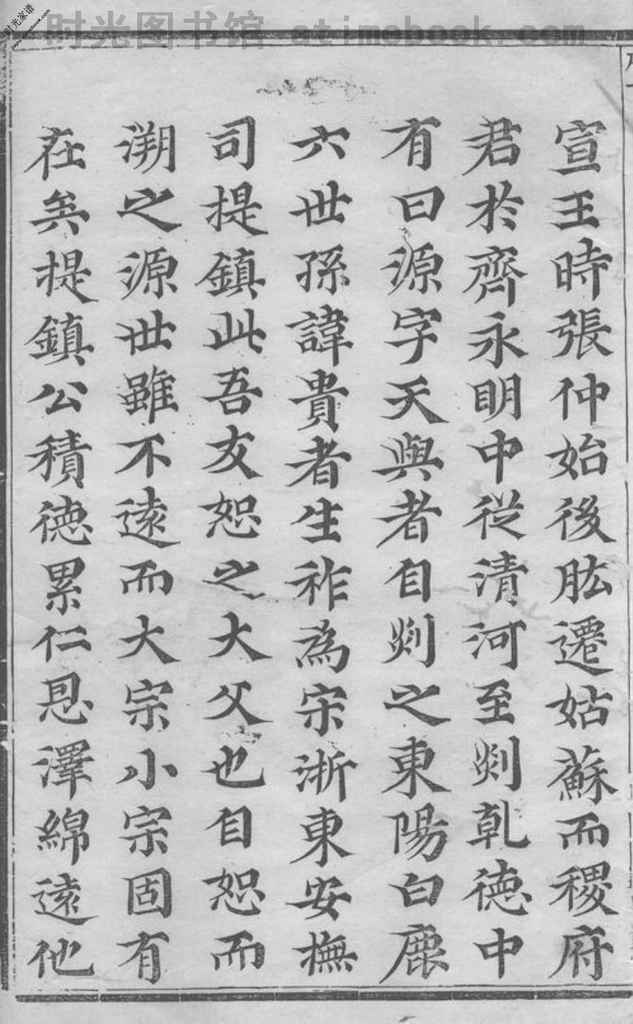 时光图书馆 atimebook.com
时光家谱
宣王時張仲始後肱遷姑蘇而稷府
君於齊永明中從清河至剡乹德中
有曰源字天與者自剡之東陽白鹿
六世孫諱貴者生祚為宗浙東安撫
司提鎮此吾友恕之大父也自恕而
溯之源世雖不遠而大宗小宗固有
在矣提鎮公積德累仁恩澤綿遠他